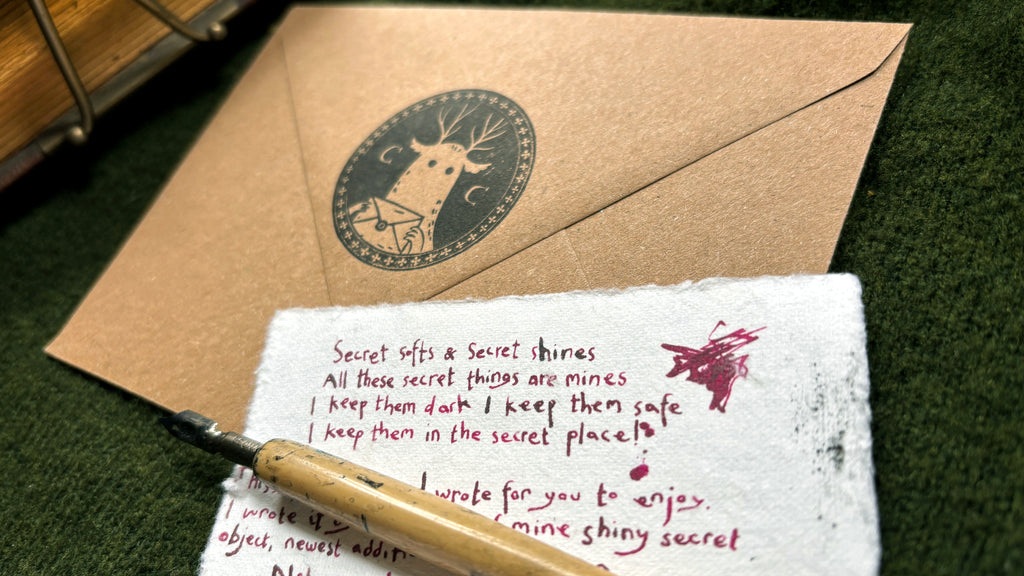 Secret softs & Secret shines
All these secret things are mines
I keep them dark I keep them safe
I keep them in the secret place!
I wrote for you to enjoy.
I wrote it mine shiny secret
object, newest